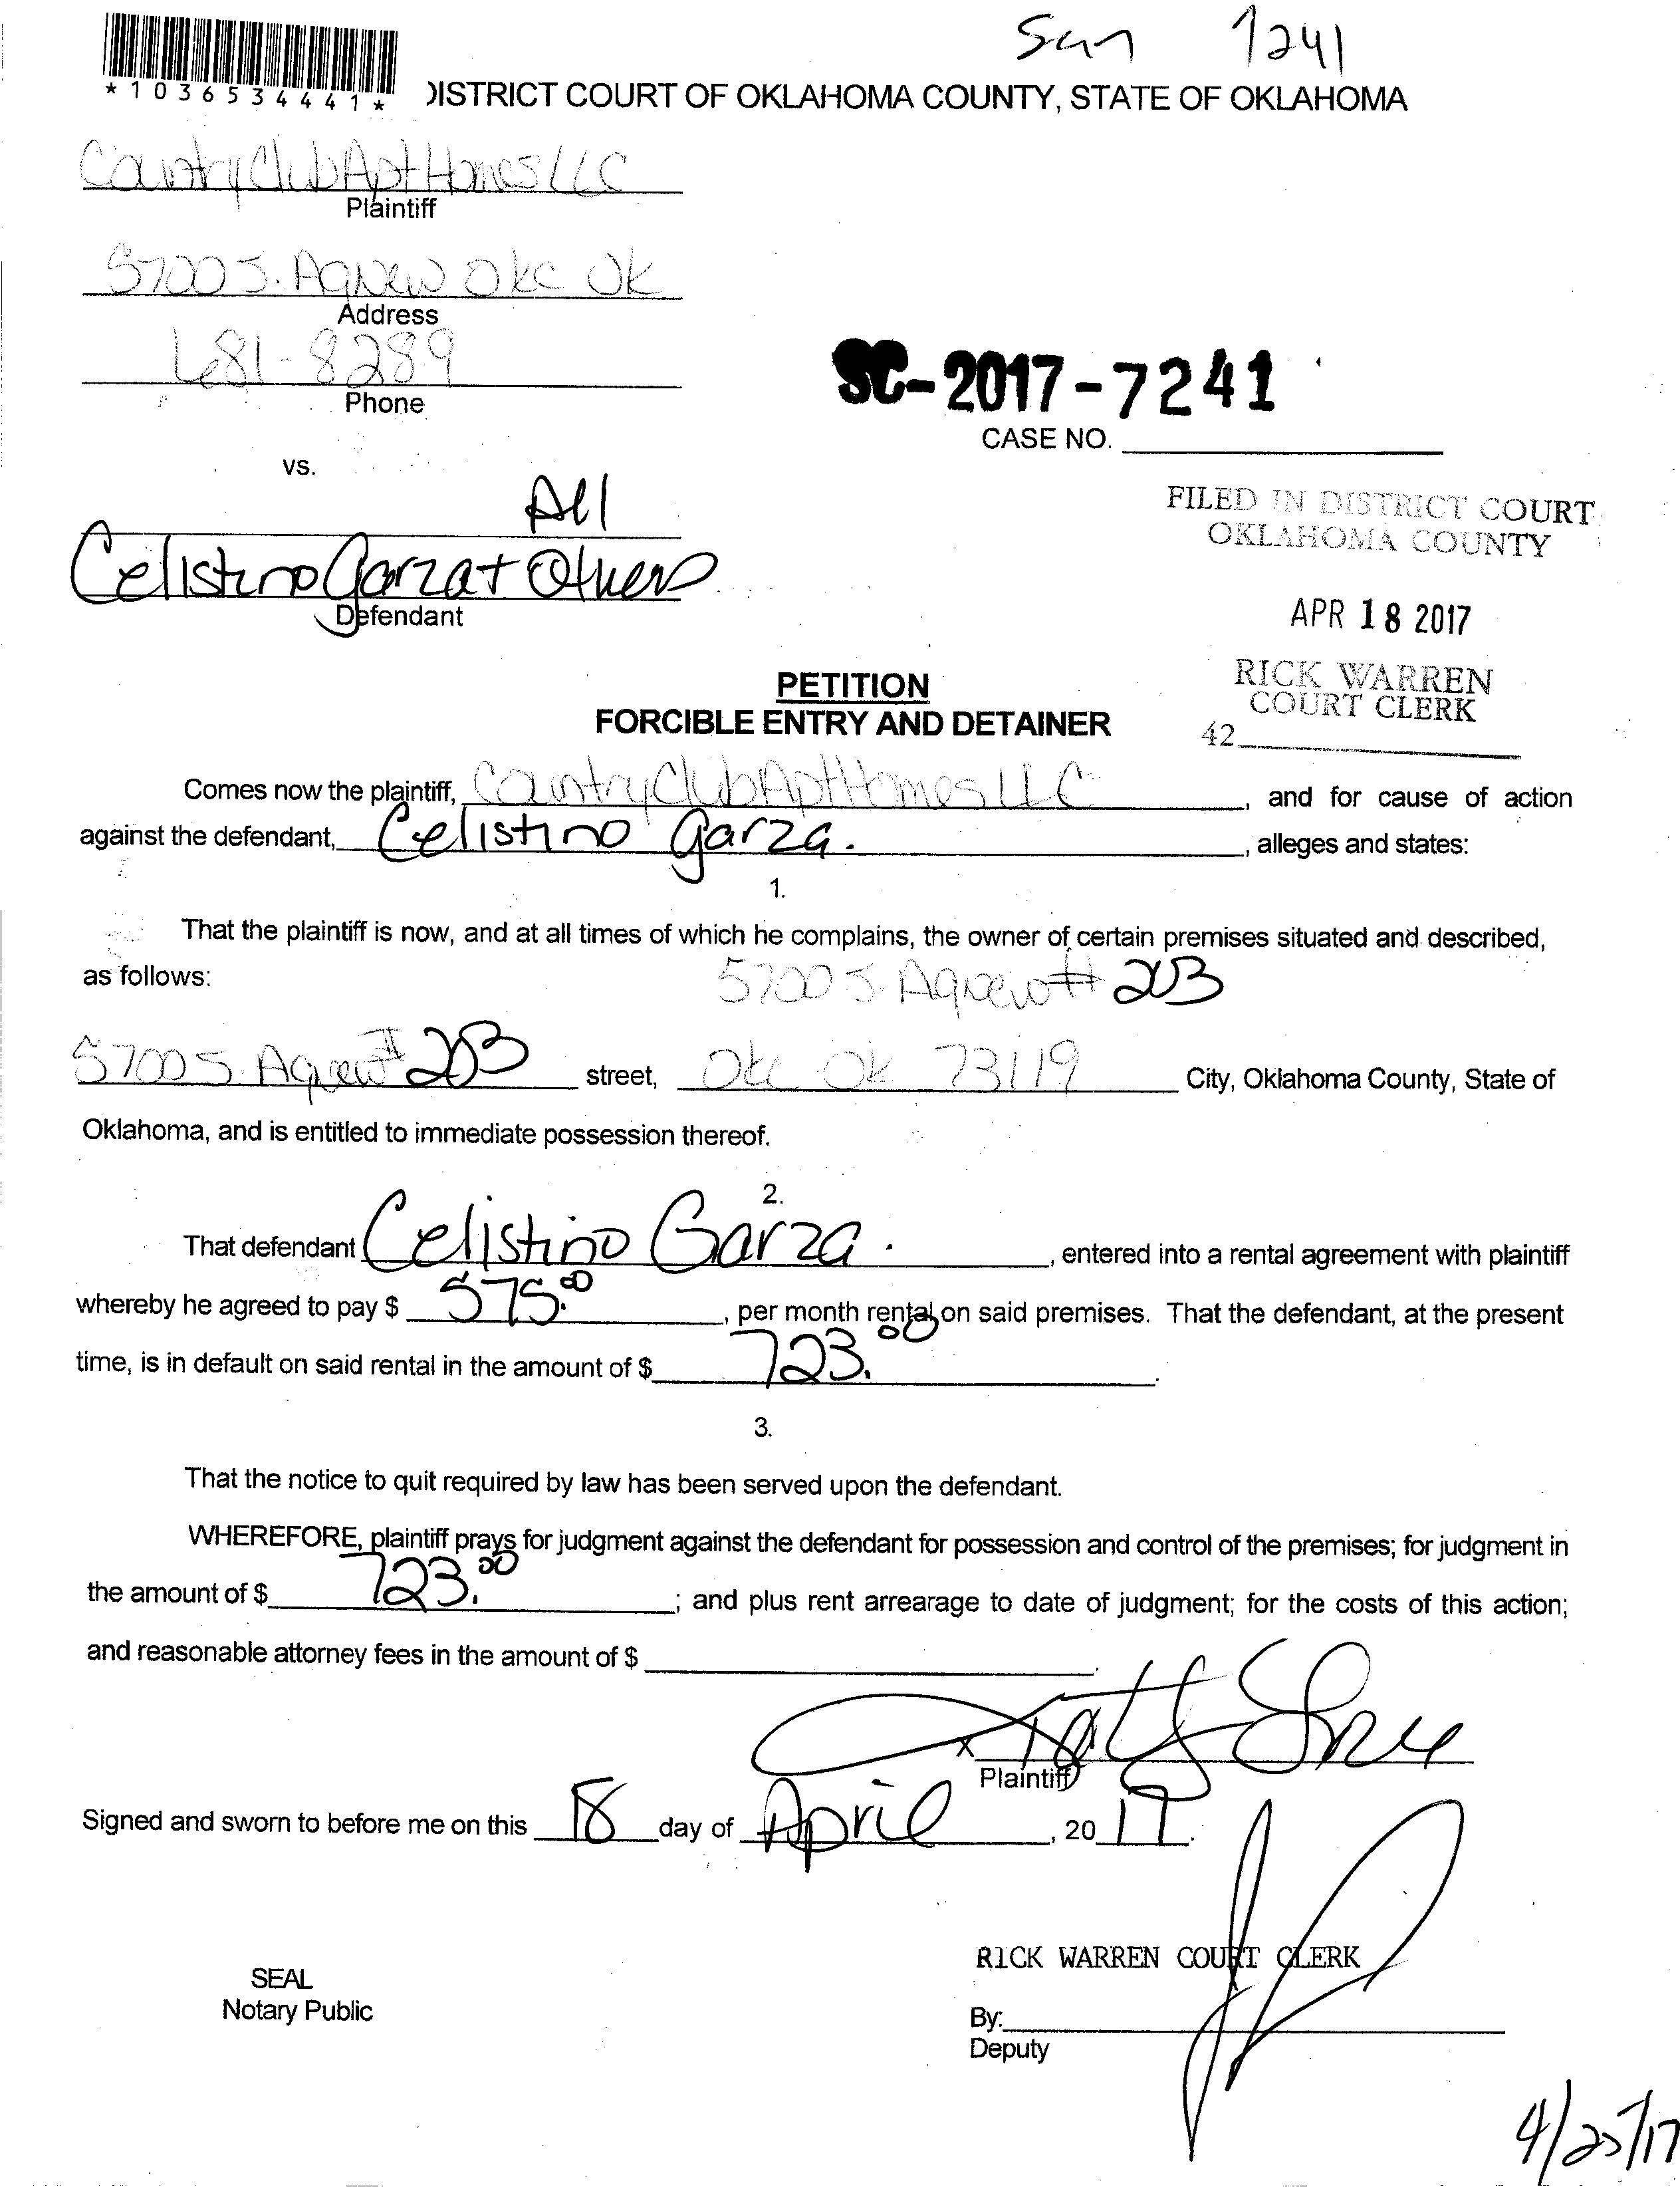 San 7241
*1036534441*
DISTRICT COURT OF OKLAHOMA COUNTY, STATE OF OKLAHOMA
Country Club Apt Homes LLC
Plaintiff
5700 S. Agnew Okc Ok
Address
681-8289
Phone
SC-2017-7241
CASE NO.
vs.
All
Celistino Garza + Others
Defendant
FILED IN DISTRICT COURT
OKLAHOMA COUNTY
APR 18 2017
RICK WARREN
COURT CLERK
42
PETITION
FORCIBLE ENTRY AND DETAINER
Comes now the plaintiff, Country Club Apt Homes LLC, and for cause of action
against the defendant, Celistino Garza., alleges and states:
1.
That the plaintiff is now, and at all times of which he complains, the owner of certain premises situated and described,
as follows: 5700 S. Agnew # 203
5700 S. Agnew # 203 street, Okc Ok 73119 City, Oklahoma County, State of
Oklahoma, and is entitled to immediate possession thereof.
2.
That defendant Celistino Garza., entered into a rental agreement with plaintiff
whereby he agreed to pay $ 575.00, per month rental on said premises. That the defendant, at the present
time, is in default on said rental in the amount of $ 723.00.
3.
That the notice to quit required by law has been served upon the defendant.
WHEREFORE, plaintiff prays for judgment against the defendant for possession and control of the premises; for judgment in
the amount of $ 723.00; and plus rent arrearage to date of judgment; for the costs of this action;
and reasonable attorney fees in the amount of $.
x
Plaintiff
Signed and sworn to before me on this 18 day of April, 2017.
RICK WARREN COURT CLERK
SEAL
Notary Public
By:
Deputy
4/25/17